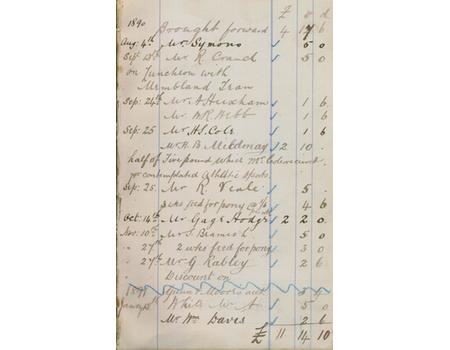 £ s d
1890 Brought forward 4 17 6
Aug: 4th Mr. Symons 5 0
Sept 13th Mr R. Crand 5 0
on Luncheon with
Membland Team
Sep: 24th Mr. A Huxham 1 6
Mr. W R Webb 1 6
Sep: 25 Mr. H.S. Cole 1 6
Mr. H. B Mildmay 2 10
half of Five pound which
for contemplated Athletic Sports
Sep: 25. Mr R. Veale 5
3 wks feed for pony @ 1/6 4 6
Oct: 14th Mr Gage Hodge 2 2 0
Nov: 10th Mr S. Beamish 5 0
" 27th 2 wks feed for pony 3 0
" 27th Mr G Rabley 2 6
Discount on
1891
January White Mr A 5 0
Mr. Wm Daves 2 6
£ 11 14 10